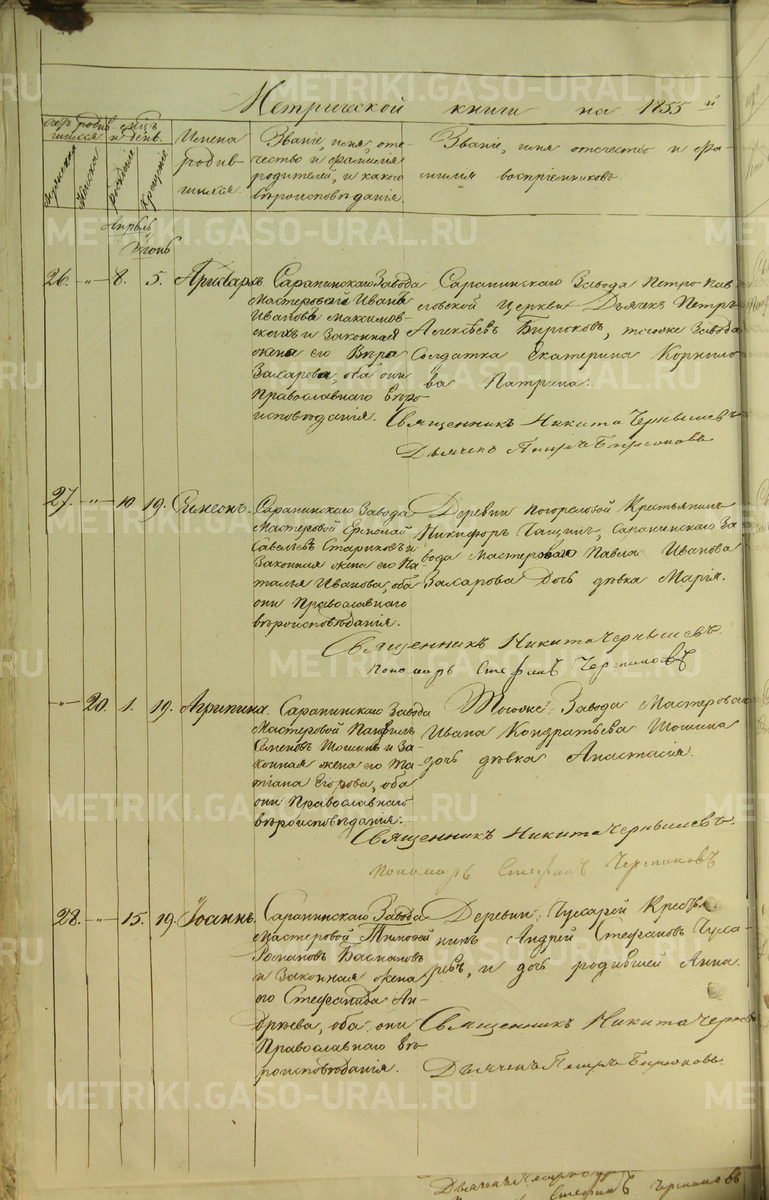 METRIKI.GASO-URAL.RU
Метрической книги на 1855 й
Счетъ родив
шихся
Мужеска
Женска
мѣсяцъ
и день.
рожденіе
Крещеніе
Имена
родив
шихся.
Званіе, имя, оте-
чество и фамилія
родителей, и какого
вѣроисповѣданія.
Званіе, имя отечество и фа-
милія воспріемниковъ.
Апрѣль
Іюнь
26. -"- 8. 5.
Сарапинскаго Завода
Мастеровой Иванъ
Ивановъ Максимов-
скихъ и Законная
жена его Вѣра
Захарова, оба они
Православнаго вѣро
исповѣданія.
Сарапинскаго Завода Петро-Пав-
ловской Церкви Дьячекъ Петръ
Алексѣевъ Бирюковъ, тогоже Завода
Солдатка Екатерина Корнило
ва Патрина.
Священникъ Никита Чернышевъ
Дьячекъ Петръ Бирюковъ
27. -"- 10. 19. Симеонъ.
Сарапинскаго Завода
Мастеровой Ермолай
Савельевъ Стариковъ и
Законная жена его На
талья Иванова, оба
они Православнаго
вѣроисповѣданія.
Деревни Погорѣловой Крестьянинъ
Никифоръ, Сарапинскаго За
вода Мастероваго Павла Иванова
Захарова дочь дѣвка Марія.
Священникъ Никита Чернышевъ.
пономарь Стефанъ Черепановъ
-"- 20. 1. 19. Агрипина.
Сарапинскаго Завода
Мастеровой Панфилъ
Семеновъ Шошинъ и За-
конная жена его Та-
тіана Егорова, оба
они Православнаго
вѣроисповѣданія.
Тогоже Завода Мастероваго
Ивана Кондратьева Шошина
дочь дѣвка Анастасія.
Священникъ Никита Чернышевъ.
Пономарь Стефанъ Черепановъ
28. -"- 15. 19. Іоаннъ.
Сарапинскаго Завода
Мастеровой Тимофей
и Законная жена
его Стефанида Ан-
дреева, оба они
Православнаго вѣ-
роисповѣданія.
Деревни Крестья
нинъ Андрей Стефановъ
и дочь родившей Анна.
Священникъ Никита Черныш
Дьячекъ Петръ Бирюковъ.
Дьячекъ Петръ
Стефанъ Черепановъ